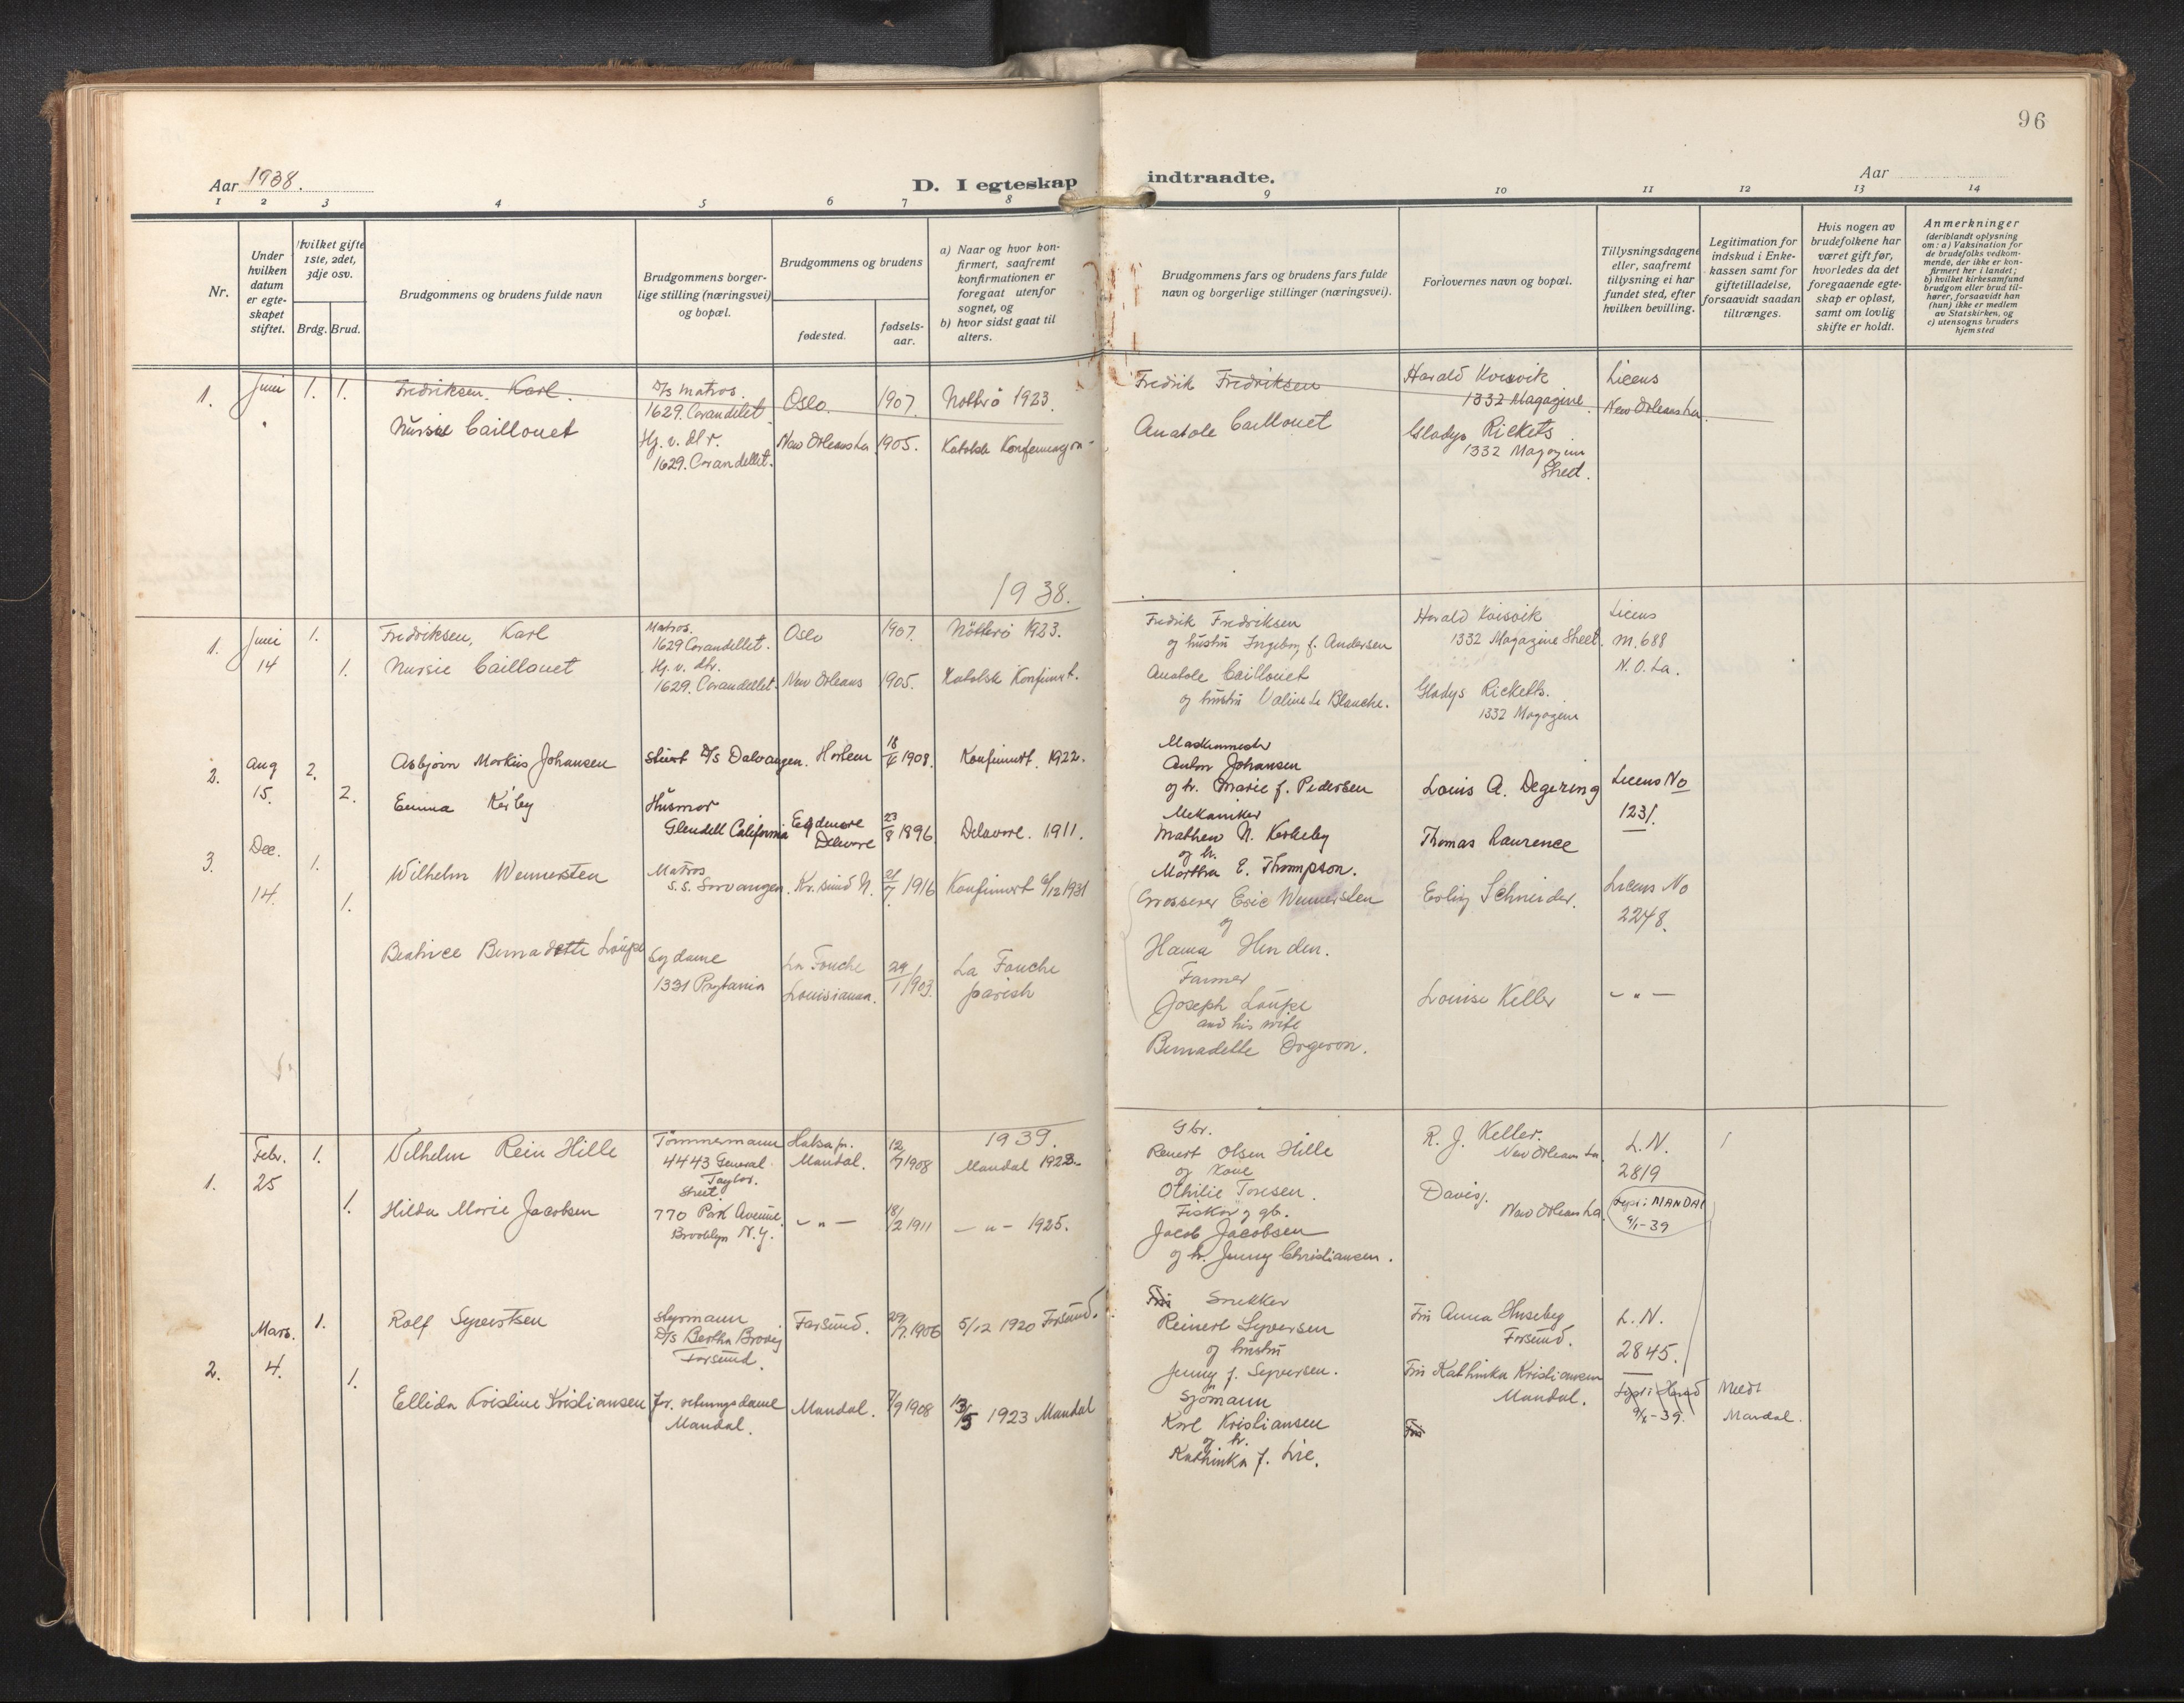 96
Aar 1938.
D. I egteskap indtraadte.
Aar
1 2 3 4 5 6 7 8 9 10 11 12 13 14
Nr.
Under hvilken datum er egteskapet stiftet.
Hvilket gifte 1ste, 2det, 3dje osv.
Brdg. Brud.
Brudgommens og brudens fulde navn
Brudgommens borgerlige stilling (næringsvei) og bopæl.
Brudgommens og brudens
fødested.
fødselsaar.
a) Naar og hvor konfirmert, saafremt konfirmationen er foregaat utenfor sognet, og
b) hvor sidst gaat til alters.
Brudgommens fars og brudens fars fulde navn og borgerlige stillinger (næringsvei).
Forlovernes navn og bopæl.
Tillysningsdagene eller, saafremt tillysning ei har fundet sted, efter hvilken bevilling.
Legitimation for indskud i Enkekassen samt for giftetilladelse, forsaavidt saadan tiltrænges.
Hvis nogen av brudefolkene har været gift før, hvorledes da det foregaaende egteskap er opløst, samt om lovlig skifte er holdt.
Anmerkninger
(deriblandt oplysning om: a) Vaksination for de brudefolks vedkommende, der ikke er konfirmert her i landet; b) hvilket kirkesamfund brudgom eller brud tilhører, forsaavidt han (hun) ikke er medlem av Statskirken, og c) utensogns bruders hjemsted
1. Juni 1. 1. Fredriksen. Karl. D/s matros. Oslo. 1907. Nøtterö 1923. Fredrik Fredriksen Harald Kvisvik Licens
1629. Corandellet 1332 Magazine. New Orleans La.
Nursie Caillouet Hj. v. dtr. New Orleans La. 1905. Katolsk Anatole Caillouet Gladys Rickets
1629. Corandellet. 1332 Magazine
1938.
1. Juni 1. Fredriksen, Karl Matros. Oslo 1907. Nötterö 1923. Fredrik Fredriksen Harald Kvisvik Licens
1629 Corandellet. og hustru Ingeborg f. Andersen 1332 Magazine Street. M. 688
14 1. Nursie Caillouet Hj. v. dtr. New Orleans 1905. Katolsk Konfirmert. Anatole Caillouet Gladys Ricketts. N. O. La.
1629. Corandellet. og hustru Le Blanche. 1332 Magazine
2. Aug 2. Asbjørn Markus Johansen stuert D/s Dalvangen. Horten 1908. Konfirmert. 1922. Maskinmester
Anton Johansen
og h. Marie f. Pedersen Louis A. Degering Licens No
15. 2. Emma Husmor 23/8 1896 Delavare. 1911. Mekaniker 1231.
Glendell California Delware Mathew N. Thomas Laurence
og h.
Martha E. Thompson.
3. Dec. 1. Wilhelm Wennersten Matros Kr. sund N. 1916 Konfirmert 6/12 1931 Grosserer Eric Wennersten Erling Schneider. Licens No
S.S. Sorvangen. og 2248.
14. 1. Hanna Henden.
Beatrice Bernadette Loupe Sydame La Fouche 29/1 1903. La Fouche Farmer
1331 Prytania Louisianna. parish Joseph Loupe Louise Keller – „ –
and his wife
Bernadette Orgeron.
1939.
Febr. 1. Vilhelm Rein Hille Tömmermann Halsa pr. 12/7 1908 Mandal 1923. Gbr. R. J. Keller. L. N.
4443 General Mandal. Reinert Olsen Hille New Orleans La. 2819
Taylor. og Kone
1. 25 Street. Othilie Toresen. Davis.
1. Hilda Marie Jacobsen 770 Park Avenue – „ – 18/2 1911 – „ – 1925. Fisker og gb. New Orleans La. Lyst i MANDAL
Brooklyn N.Y. Jacob Jacobsen 9/1-39
og h. Jenny Christiansen.
Mars. 1. Rolf Syvertsen Styrmann Farsund. 29/7 1906 5/12 1920 Farsund. Snekker Frk Anna Huseby L. N.
D/s Bertha Brövig Reinert Syversen Farsund. 2845.
Farsund. og hustru
2. 4. Jenny f. Syversen. Frk Kathinka Kristiansen
1. Ellida Kristine Kristiansen forretningsdame Mandal. 1908 13/5 1923 Mandal Sjömann Mandal. 9/1-39. Meldt
Mandal. Karl Kristiansen Mandal.
og h.
Kathinka f. Lie.